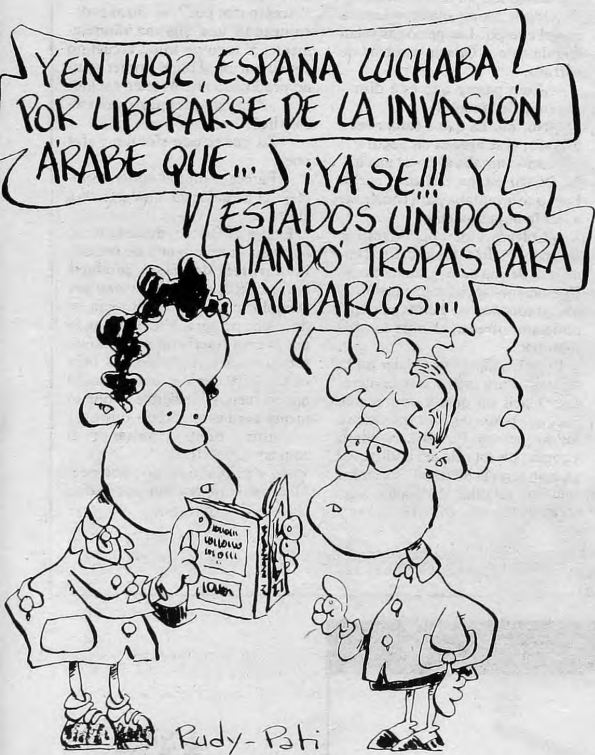 Y EN 1492, ESPAÑA LUCHABA
POR LIBERARSE DE LA INVASIÓN
ÁRABE QUE...
¡YA SE!!! Y
ESTADOS UNIDOS
MANDÓ TROPAS PARA
AYUDARLOS...
Rudy-Pati